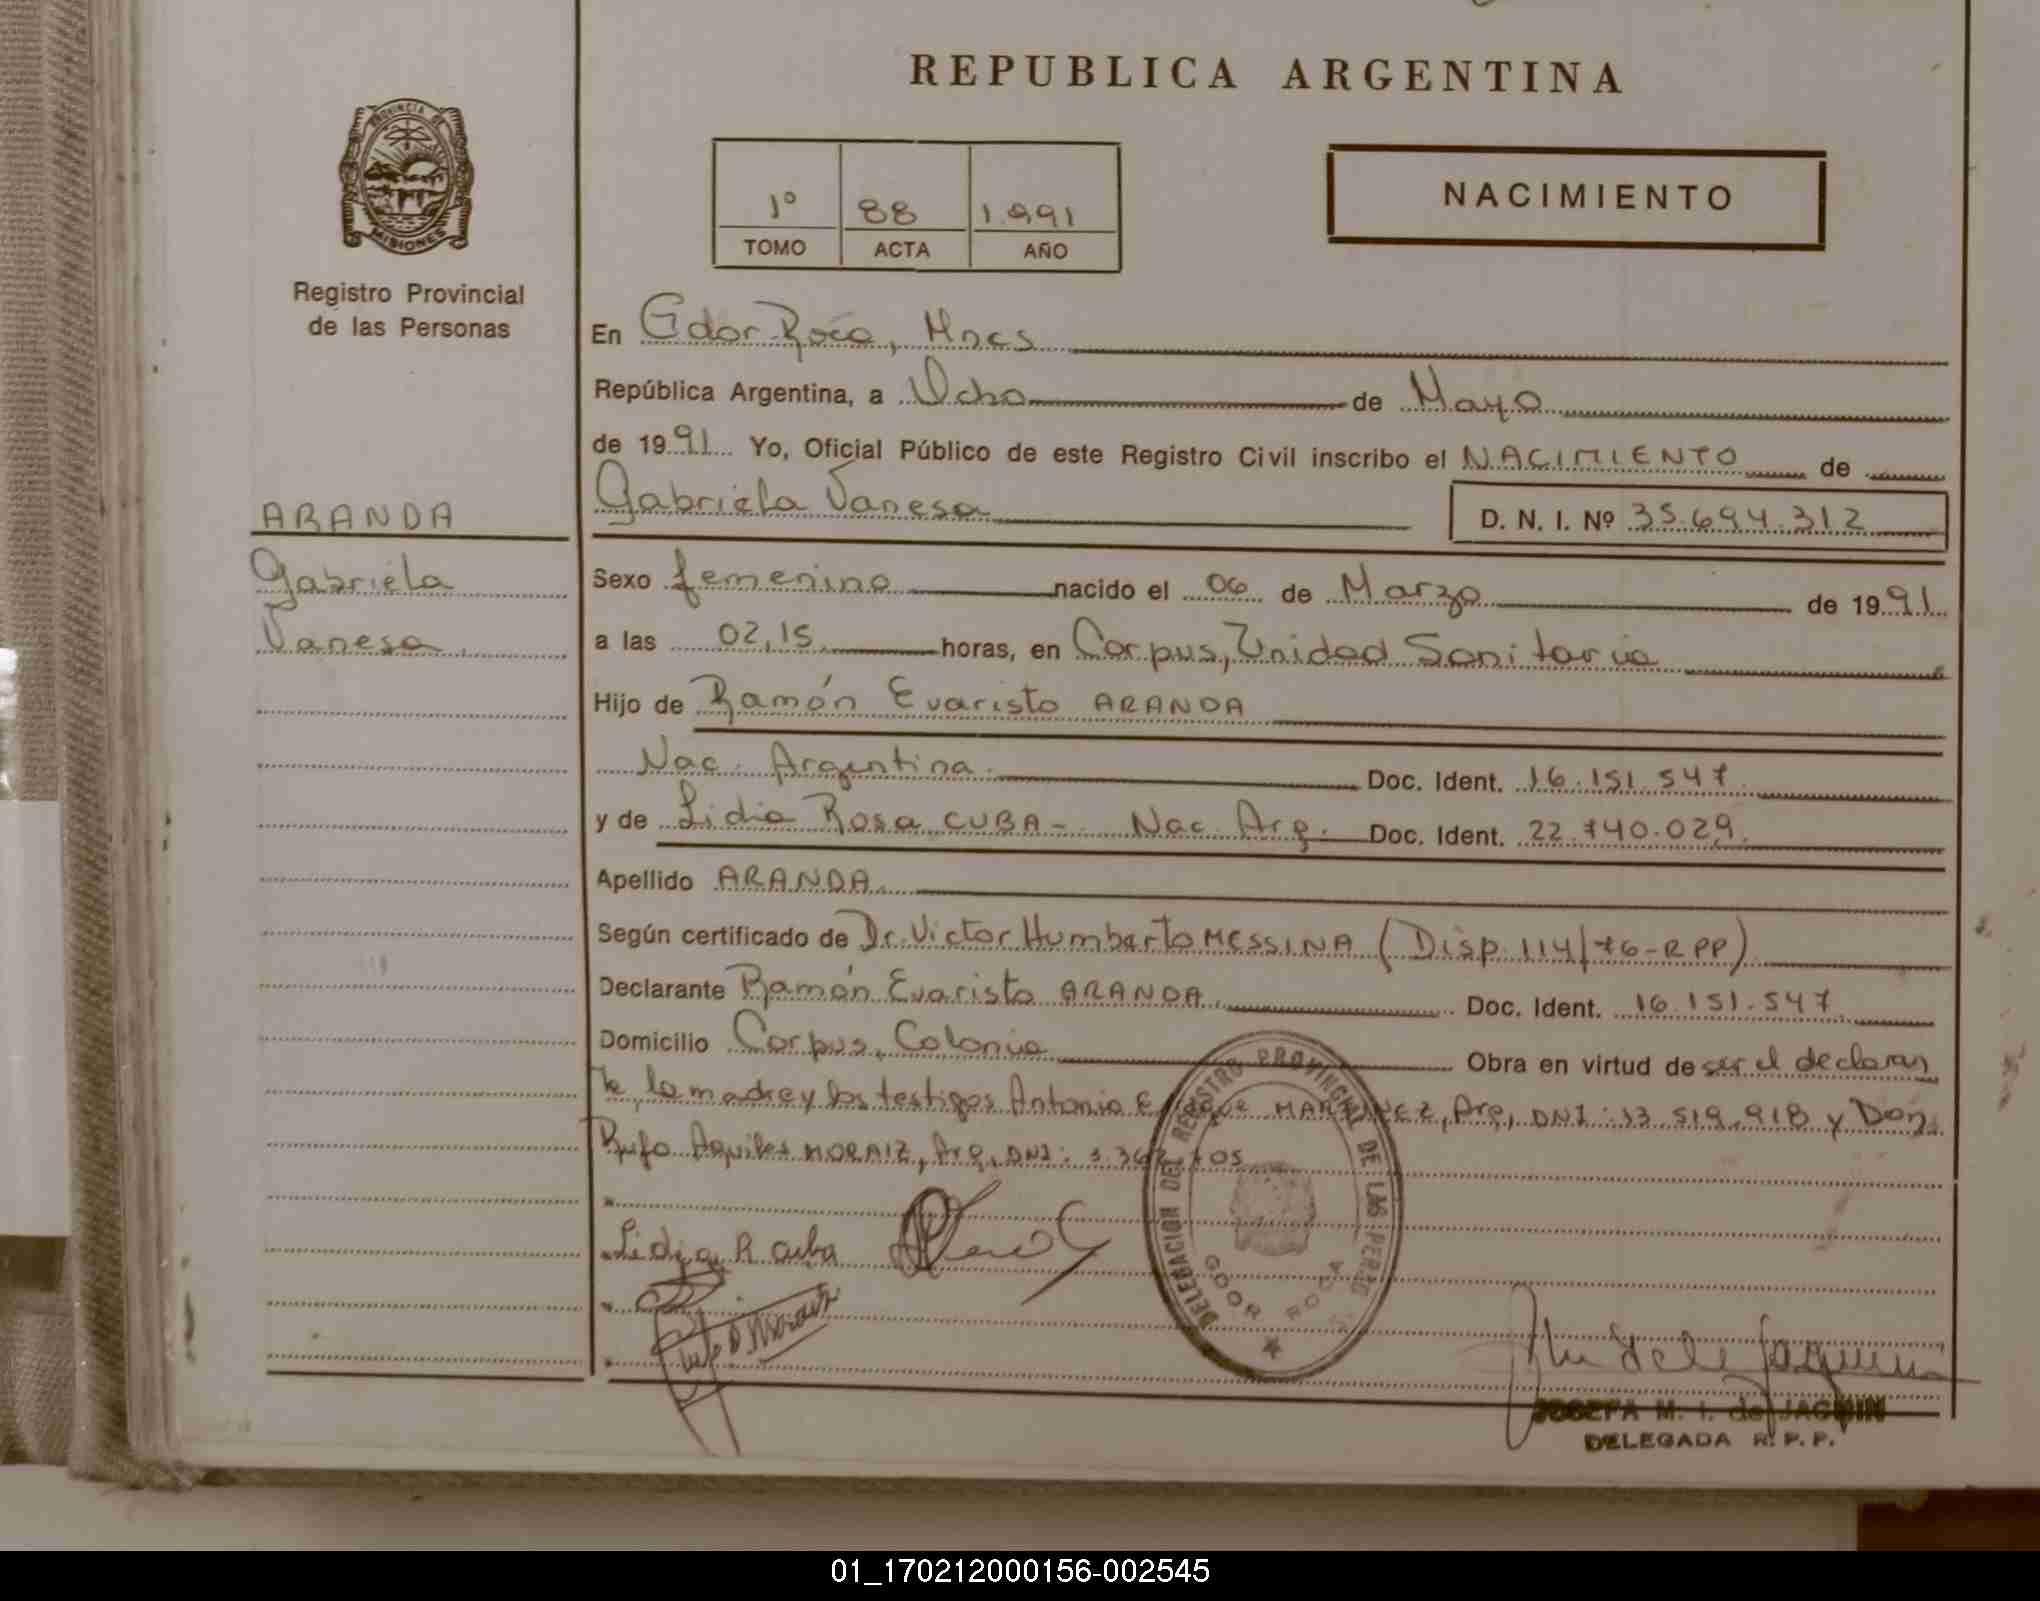 REPUBLICA ARGENTINA
PROVINCIA DE
MISIONES
Registro Provincial
de las Personas
1º 88 1.991
TOMO ACTA AÑO
NACIMIENTO
En Gdor. Roca, Mnes
República Argentina, a Ocho de Mayo
de 1991 Yo, Oficial Público de este Registro Civil inscribo el NACIMIENTO de
Gabriela Vanesa D. N. I. Nº 35.694.312
ARANDA
Gabriela
Vanesa
Sexo femenino nacido el 06 de Marzo de 1991
a las 02,15 horas, en Corpus, Unidad Sanitaria
Hijo de Ramón Evaristo ARANDA
Nac. Argentina. Doc. Ident. 16.151.547
y de Lidia Rosa CUBA-. Nac. Arg. Doc. Ident. 22.740.029.
Apellido ARANDA.
Según certificado de Dr. Victor Humberto MESSINA (Disp. 114/76-RPP)
Declarante Ramón Evaristo ARANDA. Doc. Ident. 16.151.547
Domicilio Corpus, Colonia Obra en virtud de ser el declaran
te, la madre y los testigos Antonio MARTINEZ, Arg, DNI: 13.519.918 y Don
Rufo Aquiles MORAIZ, Arg, DNI:
DELEGACION DEL REGISTRO PROVINCIAL DE LAS PERSONAS
GDOR ROCA
Lidia R Cuba
Rufo A. Moraiz
JOSEFA M. I. de JACQUIN
DELEGADA R. P. P.
01_170212000156-002545